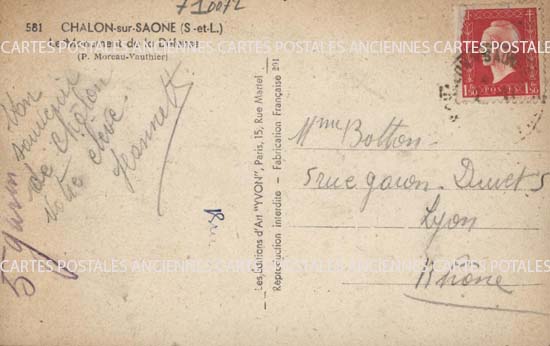 71001L
581 CHALON-sur-SAONE (S-et-L.)
Le Monument de la Défense
(P. Moreau-Vauthier)
Bon
souvenir
de Châlon
votre élève
Jeannette
Les Editions d'Art "YVON", Paris, 15, Rue Martel
Reproduction interdite - Fabrication Française
Mme Botton
5 rue garon-Duret 5
Lyon
Rhône
1f50 POSTES 1f50
CARTES POSTALES ANCIENNES CARTES POSTALES ANCIENNES CARTES POSTALES
CARTES POSTALES ANCIENNES CARTES POSTALES ANCIENNES CARTES POSTALES